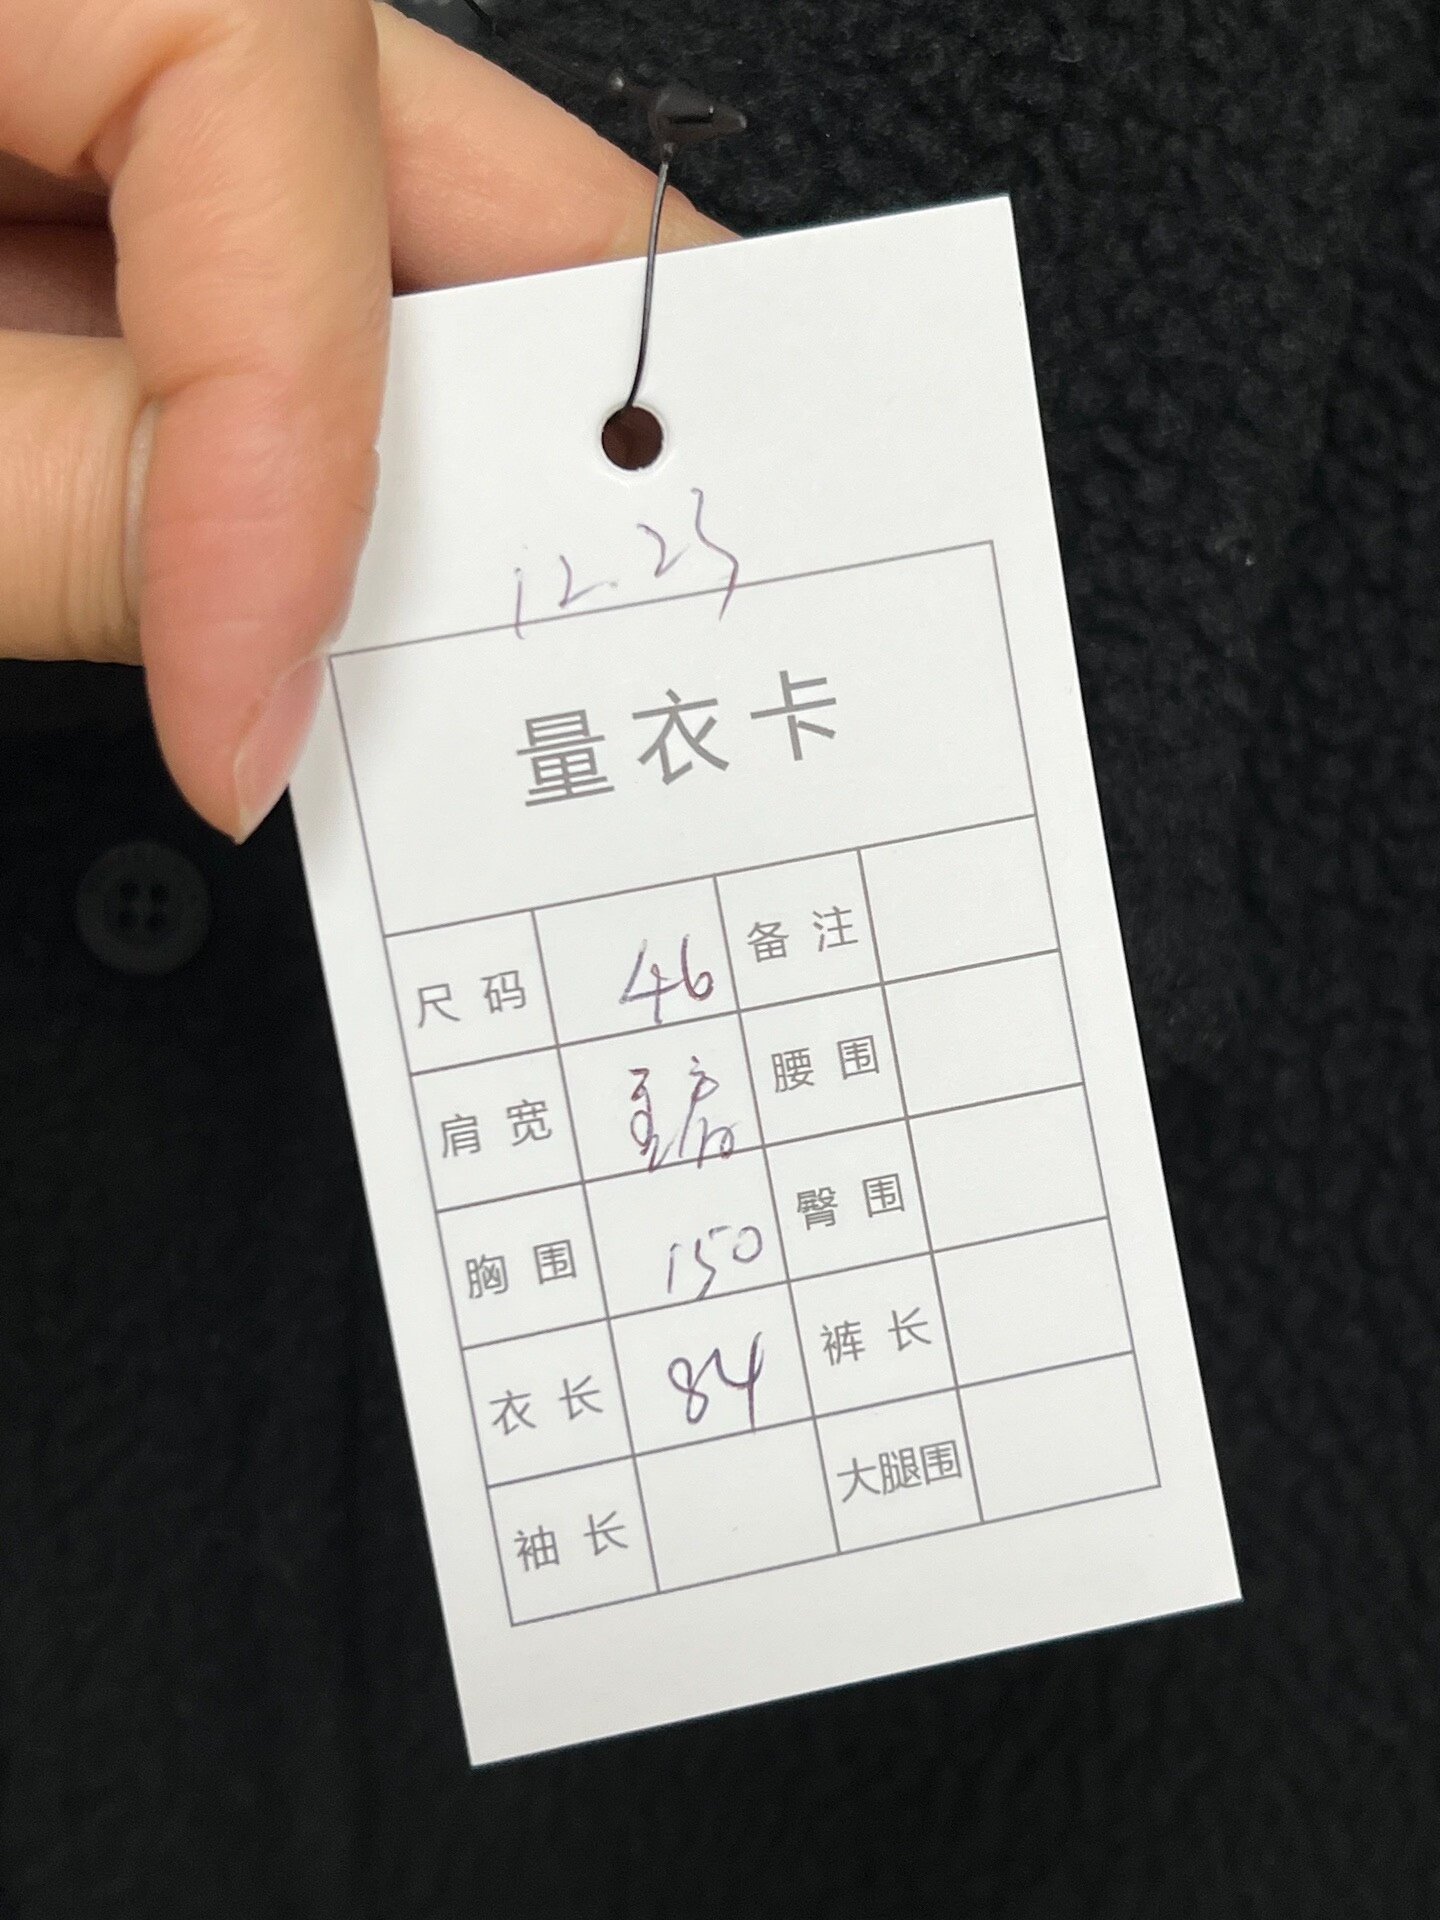 12.23
量衣卡
尺码 46 备注
肩宽 腰围
胸围 150 臀围
衣长 84 裤长
袖长 大腿围